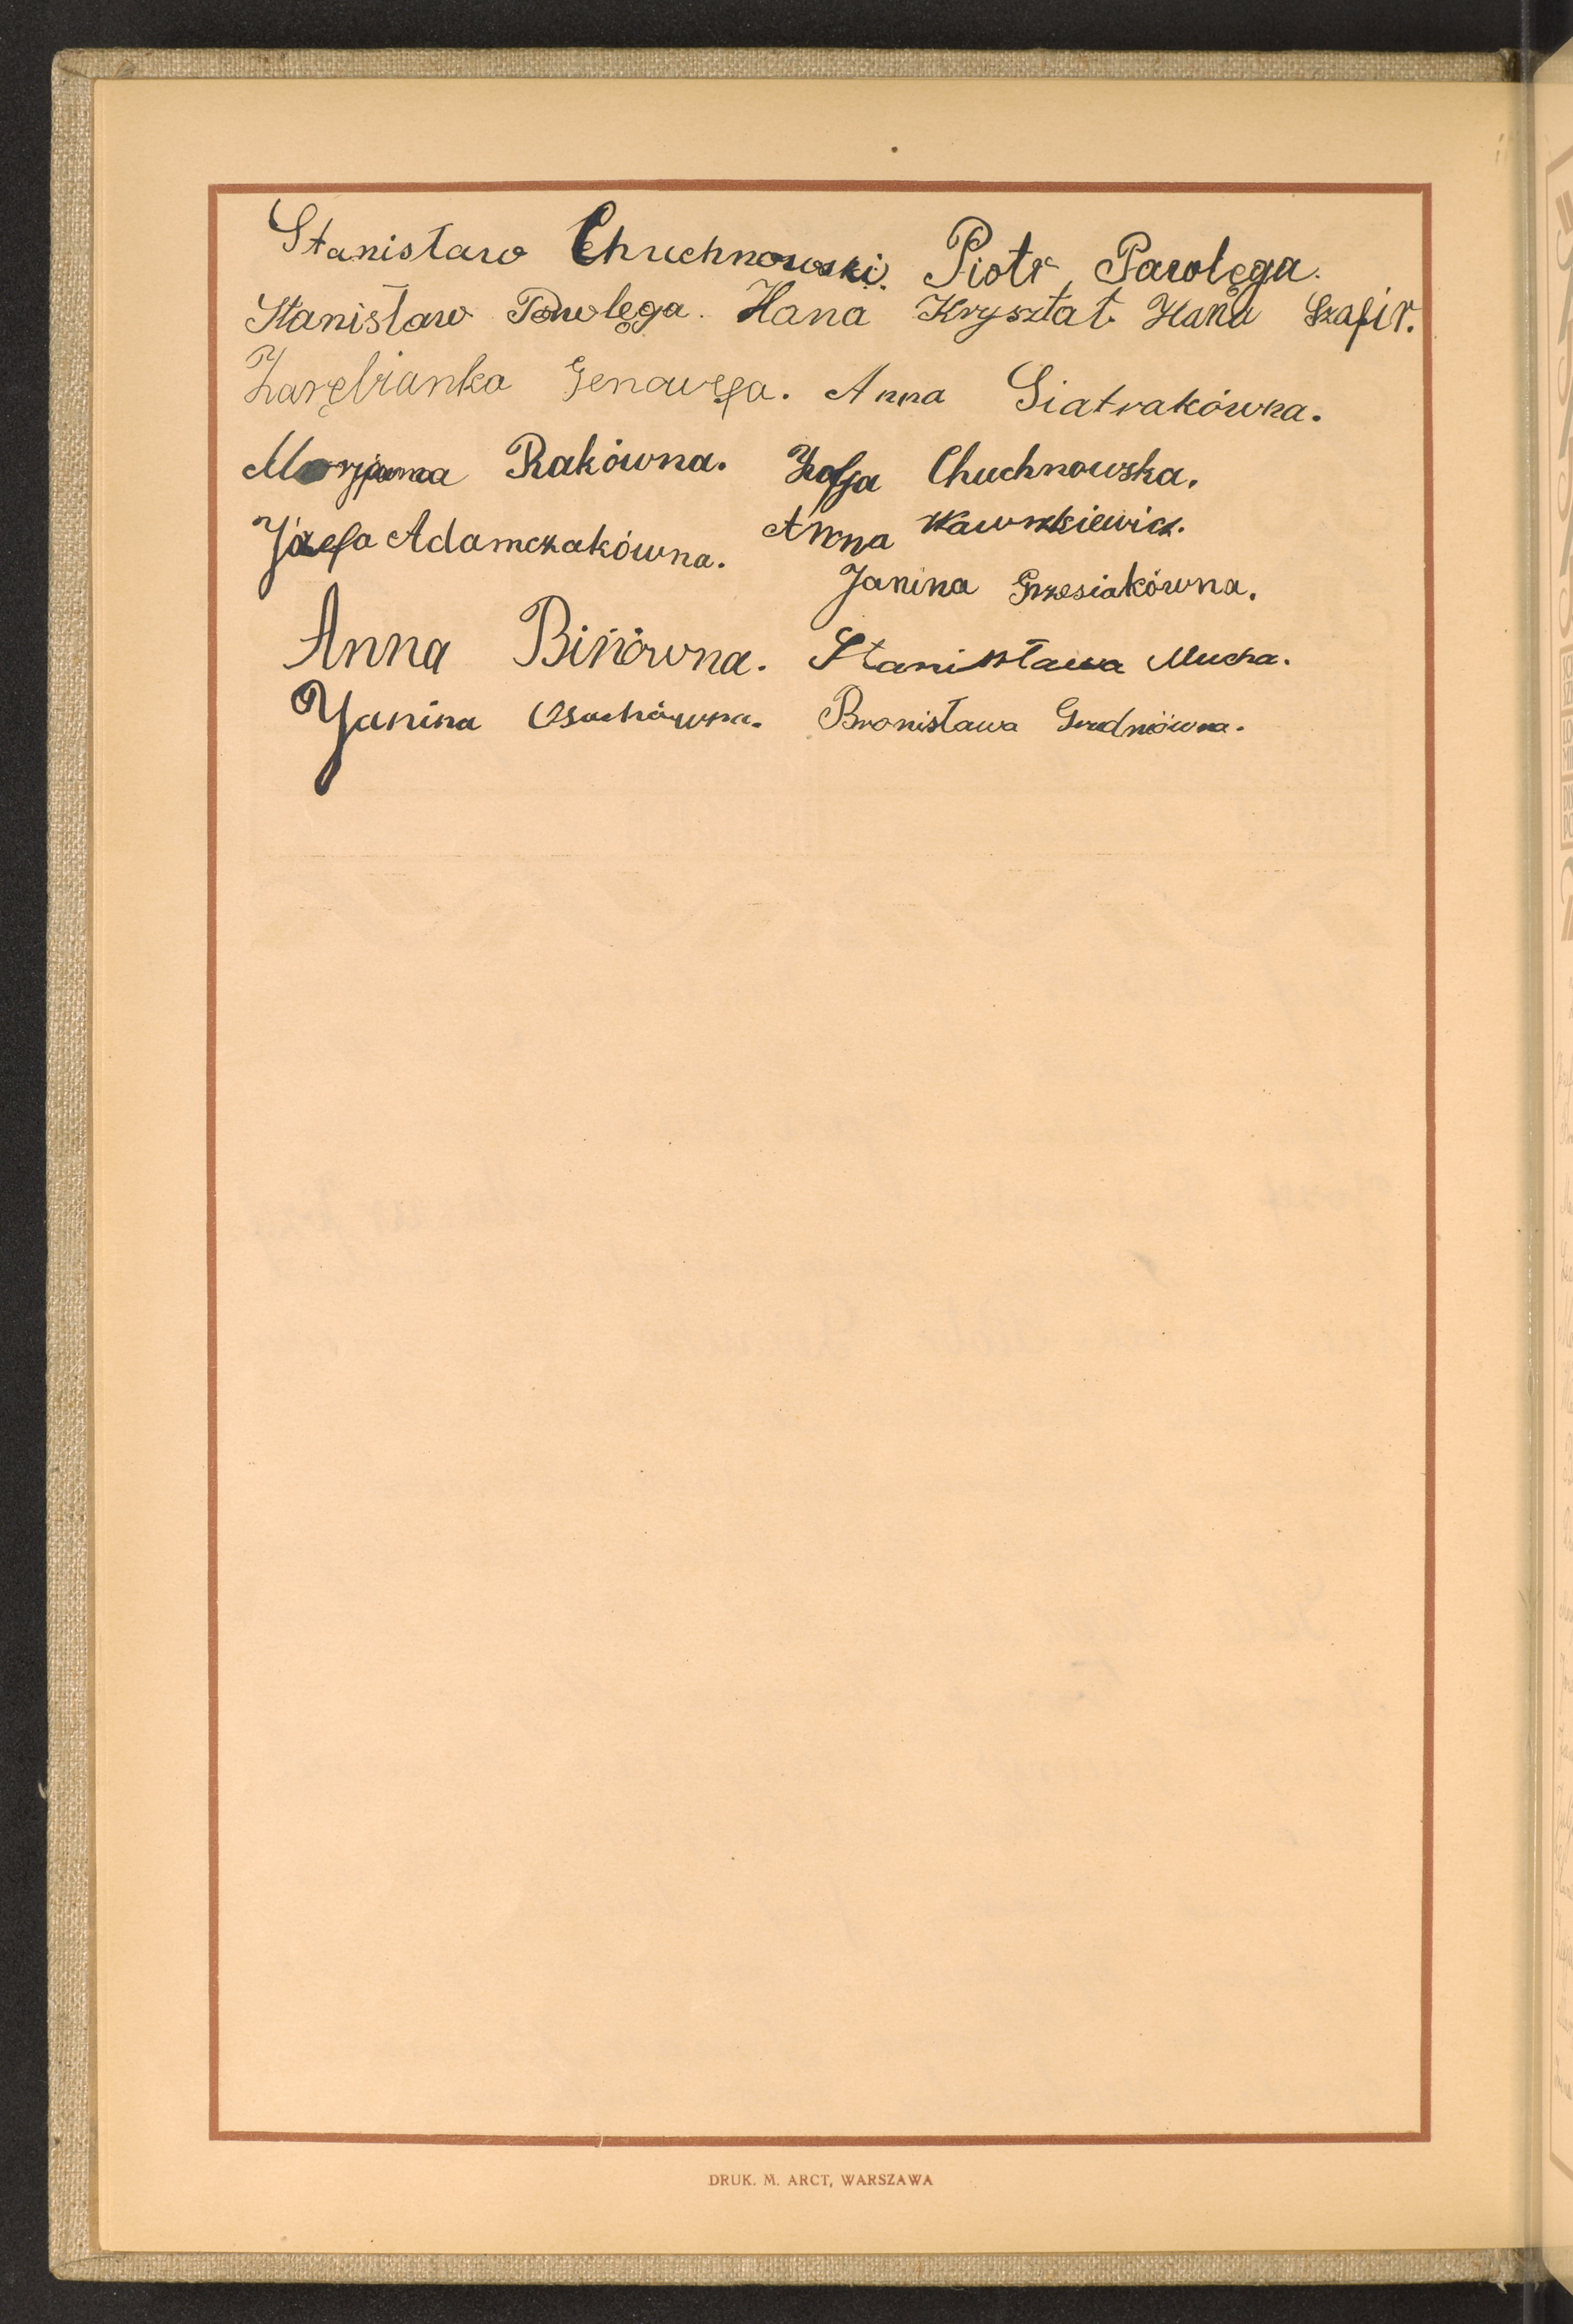 Stanisław Chuchnowski. Piotr Pawolęga.
Stanisław Pawolęga. Hana Kryształ. Hana Szafir.
Zarębianka Genowefa. Anna Siatrakówna.
Marjanna Rakówna. Zofja Chuchnowska.
Józefa Adamczakówna. Anna Wawrzkiewicz.
Janina Grzesiakówna.
Anna Binówna. Stanisława Mucha.
Janina Osuchówna. Bronisława Grudniówna.
DRUK. M. ARCT, WARSZAWA